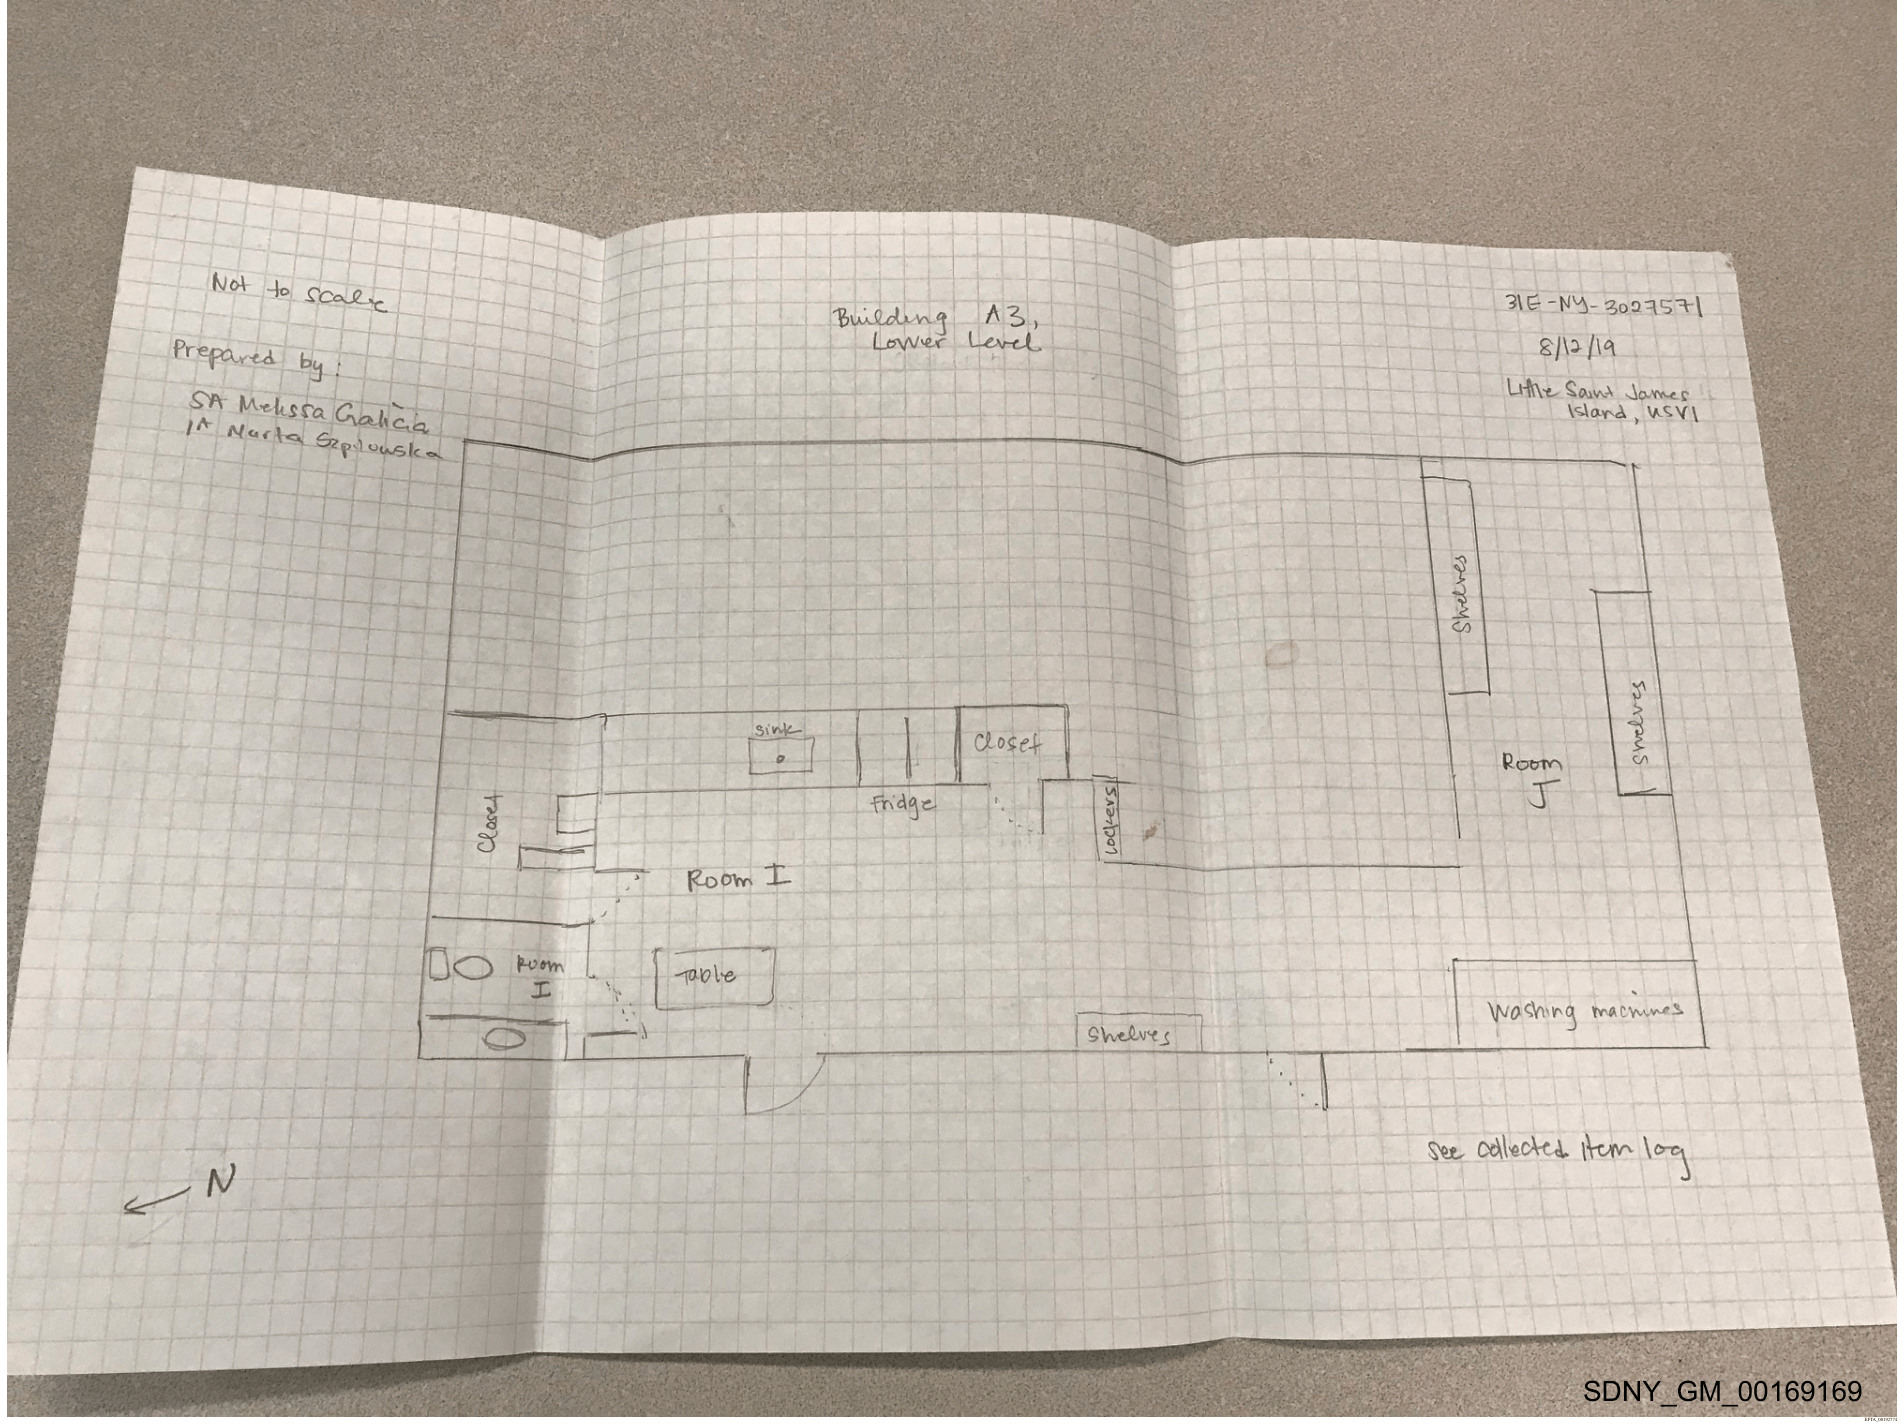 Not to scale
Prepared by:
SA Melissa Galicia
IA Marta Szpilowska
Building A3,
Lower Level
31E-NY-3027571
8/12/19
Little Saint James
Island, USVI
Shelves
Shelves
Room
J
sink
closet
Fridge
Lockers
Closet
Room I
Room
I
Table
Shelves
Washing machines
See collected item log
N
SDNY_GM_00169169